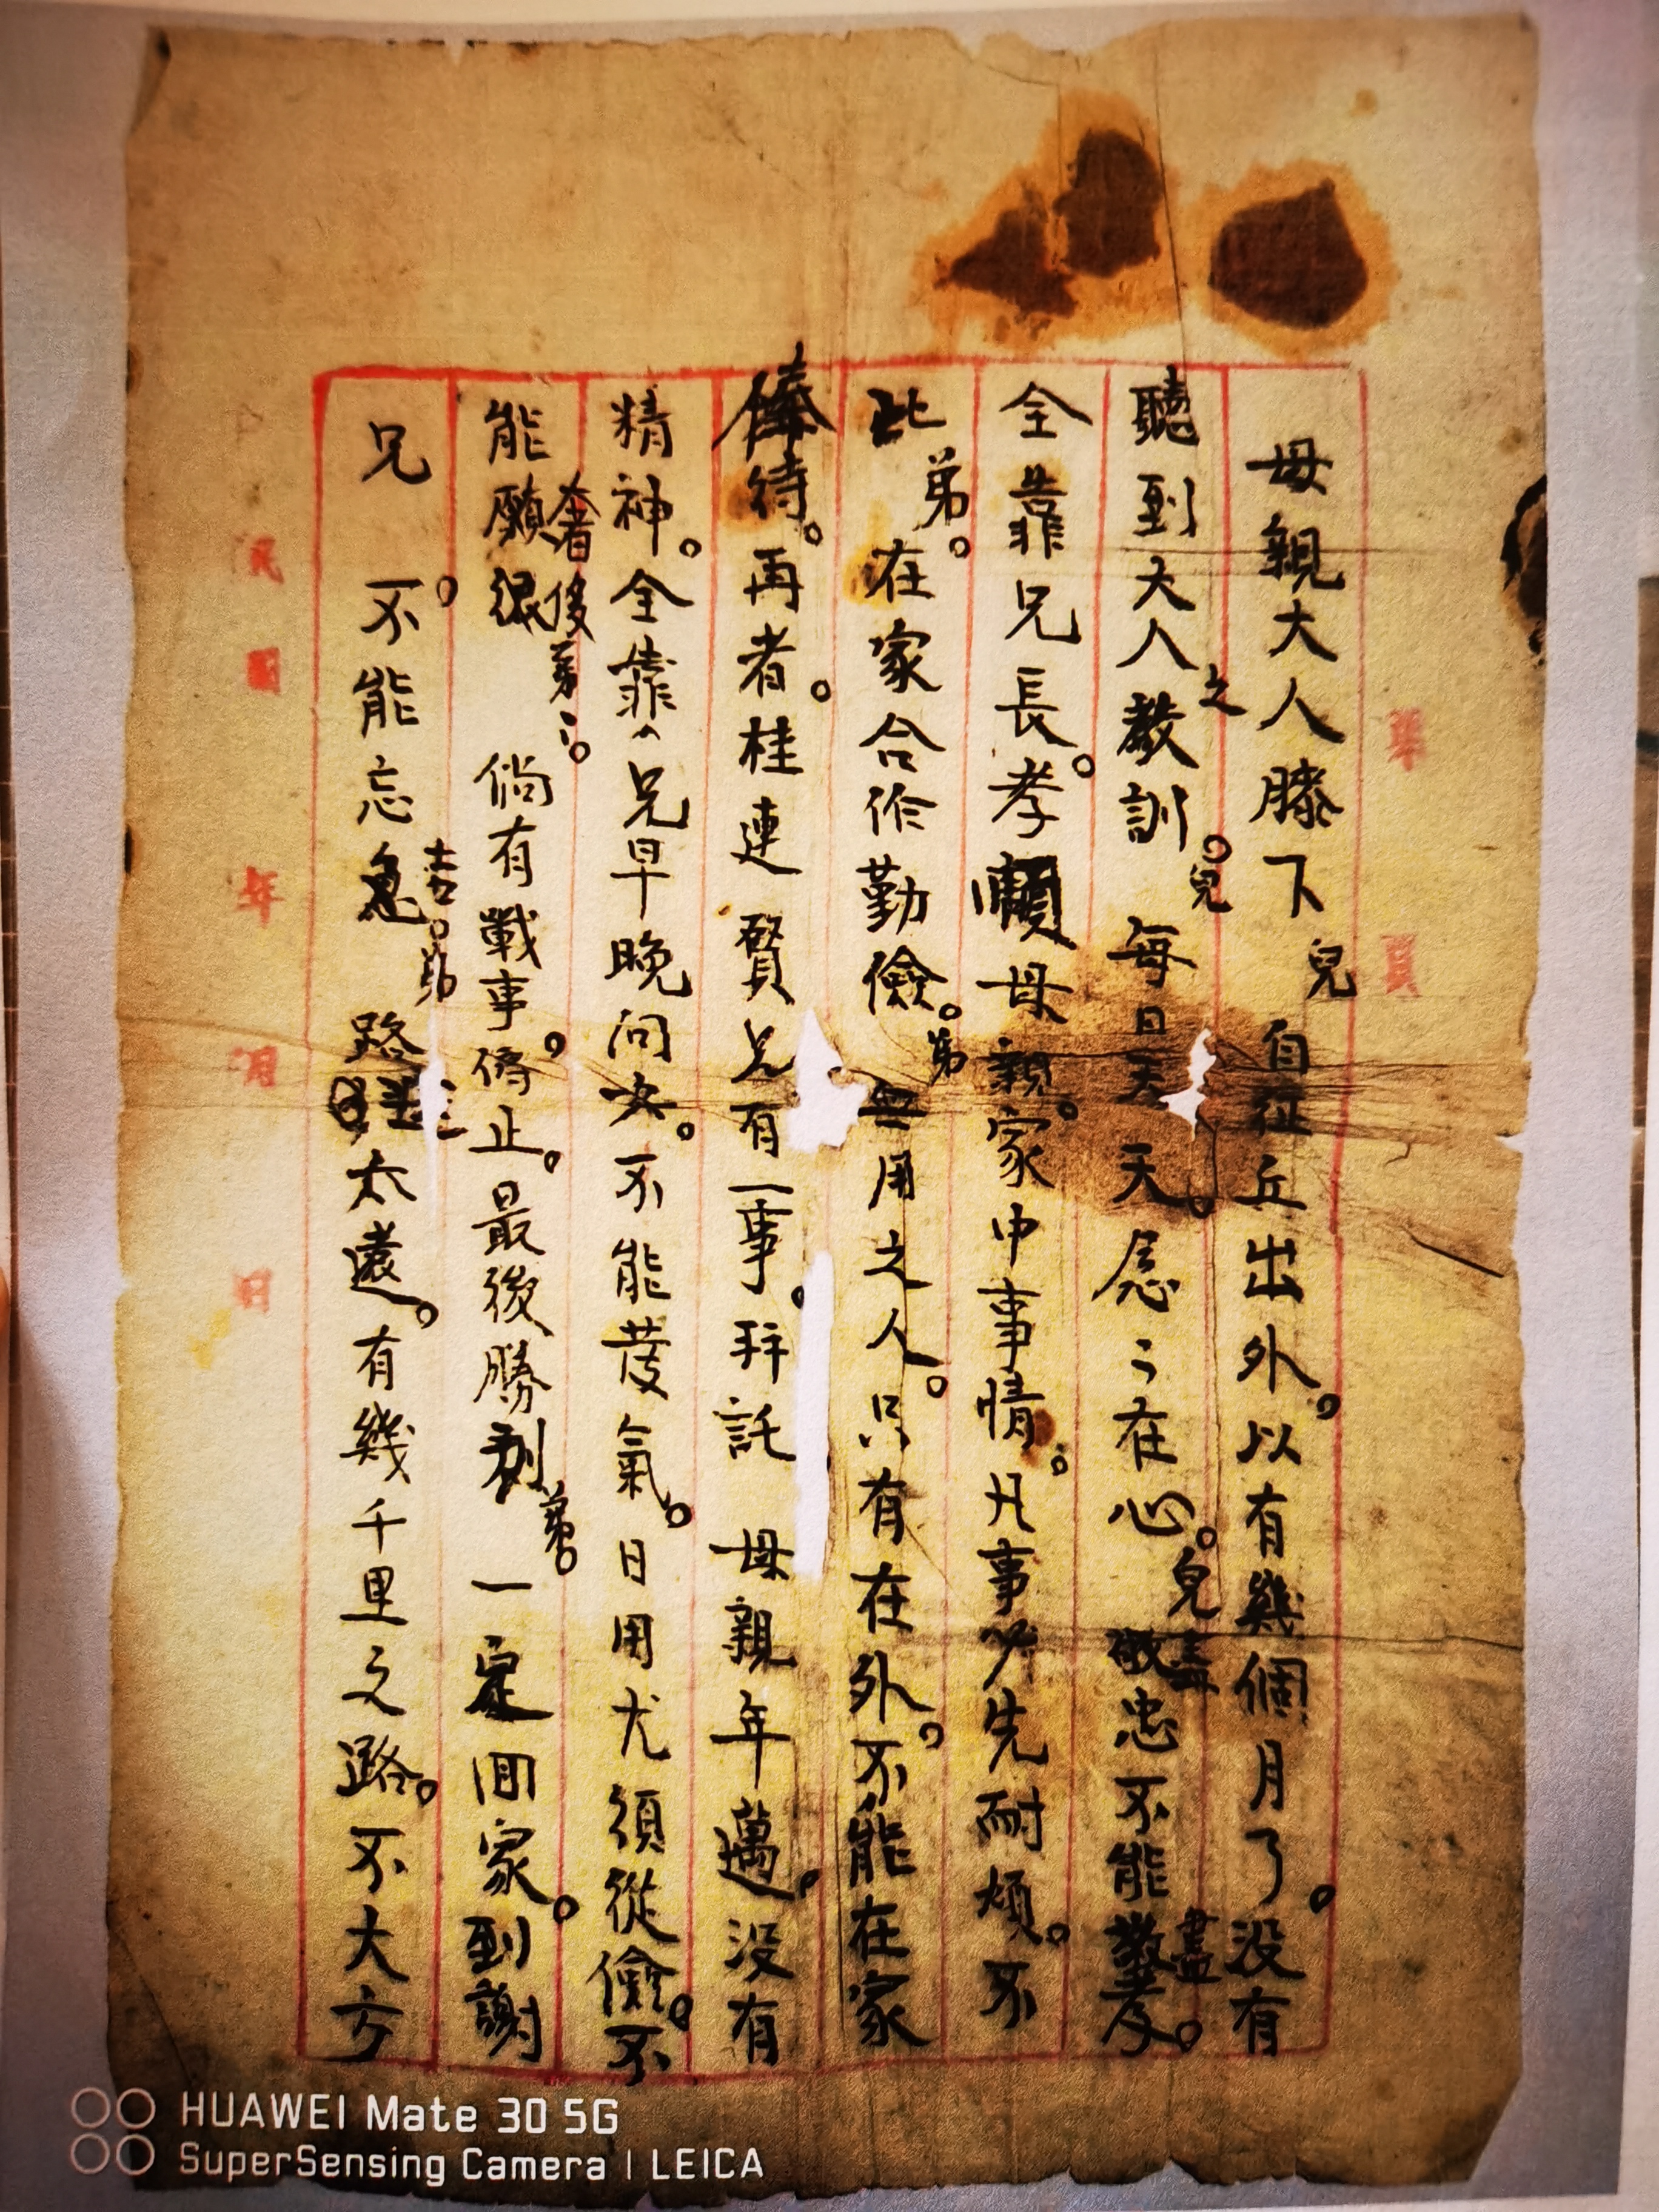 第 頁
母親大人膝下兒自征丘出外。以有幾個月了。没有
聽到大人之教訓。兒每日天天。念々在心。兒敬忠不能盡孝。
全靠兄長。孝順母親。家中事情。凡事必先耐煩。不
此弟。在家合作勤儉。弟無用之人。只有在外。不能在家
俸待。再者。桂連賢兄有一事。拜託母親年邁。没有
精神。全靠兄早晚问安。不能發氣。日用尤須從儉。不
能願很奢侈弟二。倘有戰事。停止。最後勝利弟。一定回家。到謝
兄。不能忘吉。弟路太遠。有幾千里之路。不大方
民國 年 月 日
HUAWEI Mate 30 5G
SuperSensing Camera | LEICA